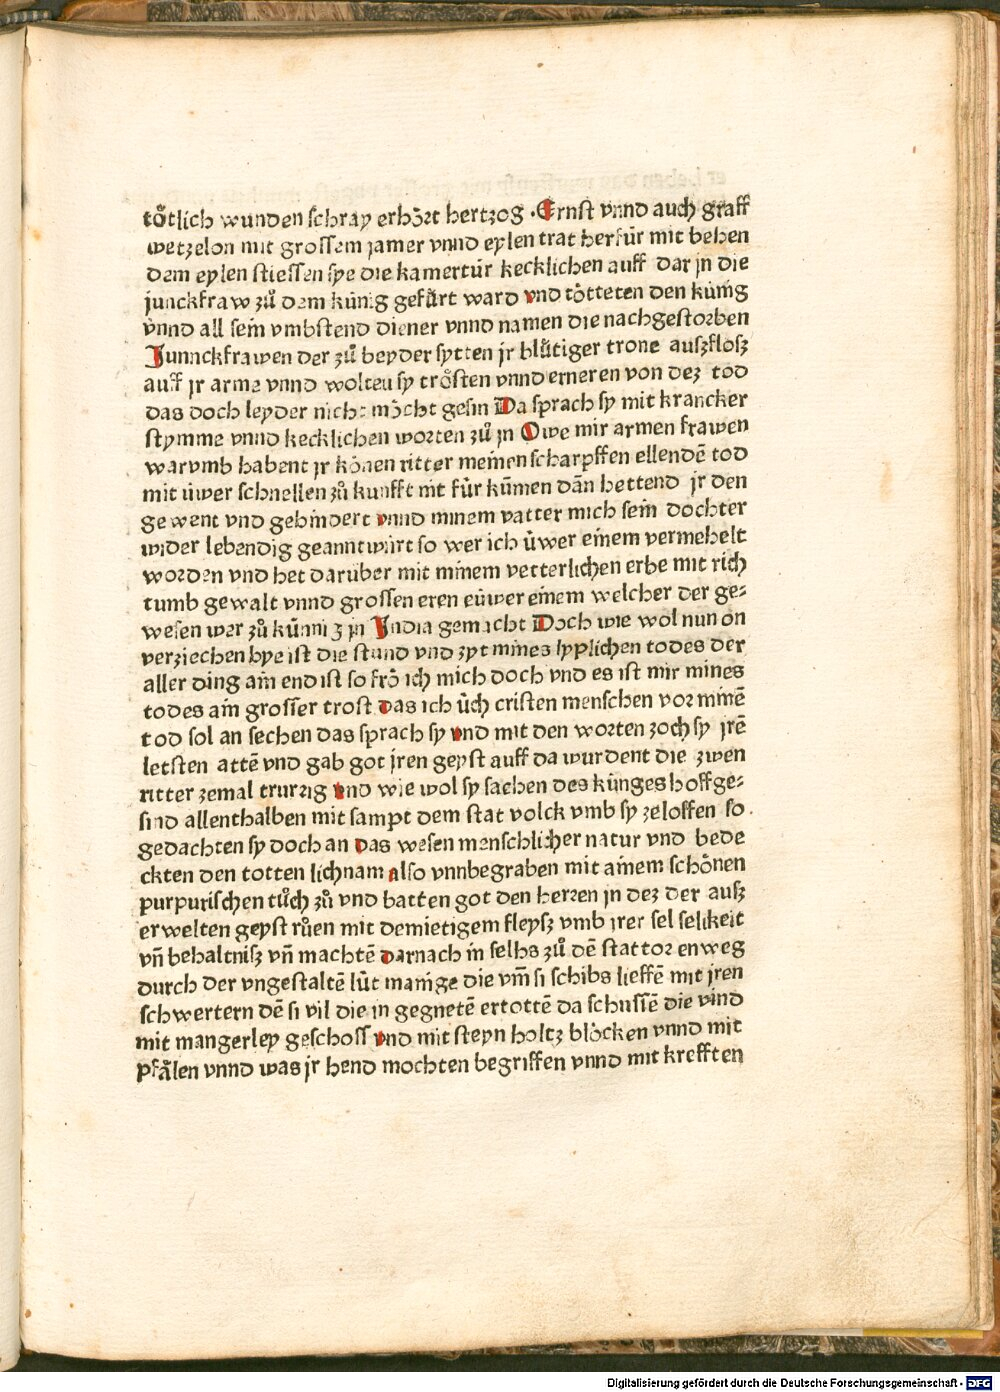 toͤtlich wunden schray erhoͤrt hertzog ·Ernst vnnd auch graff
wetzelon mit grossem jamer vnnd eylen trat herfür mit behen
dem eylen stiessen sye die kamertür kecklichen auff dar jn die
junckfraw zů dem künig gefürt ward vnd toͤtteten den künig
vnnd all sein vmbstend diener vnnd namen die nachgestorben
Junnckfrawen der zů beyder sytten jr blůtiger trone auszflosz
auff jr arme vnnd wolten sy troͤsten vnnd erneren von dez tod
das doch leyder nicht moͤcht gesin Da sprach sy mit krancker
stymme vnnd kecklichen worten zů jn Owe mir armen frawen
warvmb habent jr koͤnen ritter meinen scharpffen ellendē tod
mit üwer schnellen zů kunfft nit für kümen dān hettend jr den
gewent vnd gehindert vnnd minem vatter mich sein dochter
wider lebendig geanntwürt so wer ich üwer einem vermehelt
worden vnd het darüber mit minem vetterlichen erbe mit rich
tumb gewalt vnnd grossen eren eüwer einem welcher der ge⸗
wesen wer zů künnig in India gemacht Doch wie wol nun on
verziechen hye ist die stund vnd zyt mines lyplichen todes der
aller ding am end ist so froͤ ich mich doch vnd es ist mir mines
todes ain grosser trost das ich üch cristen menschen vor minē
tod sol an sechen das sprach sy vnd mit den worten zoch sy jrē
letsten attē vnd gab got jren geyst auff da wurdent die zwen
ritter zemal trurzig vnd wie wol sy sachen des künges hoffge⸗
sind allenthalben mit sampt dem stat volck vmb sy zeloffen so
gedachten sy doch an das wesen menschlicher natur vnd bede
ckten den totten lichnam also vnnbegraben mit ainem schoͤnen
purpurischen tůch zů vnd batten got den herren jn dez der ausz
erwelten geyst růen mit demietigem fleysz vmb irer sel selikeit
vn̄ behaltnisz vn̄ machtē darnach in selbs zů dē stattor enweg
durch der vngestaltē lüt mainge die vm̄ si schibs lieffē mit jren
schwertern dē si vil die in gegnetē ertottē da schussē die vind
mit mangerley geschoss vnd mit steyn holtz bloͤcken vnnd mit
pfaͤlen vnnd was jr hend mochten begriffen vnnd mit krefften
Digitalisierung gefördert durch die Deutsche Forschungsgemeinschaft - DFG